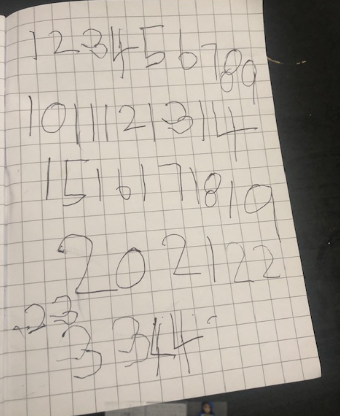 123456789
1011121314
1516171819
20 21 22
23
3 344